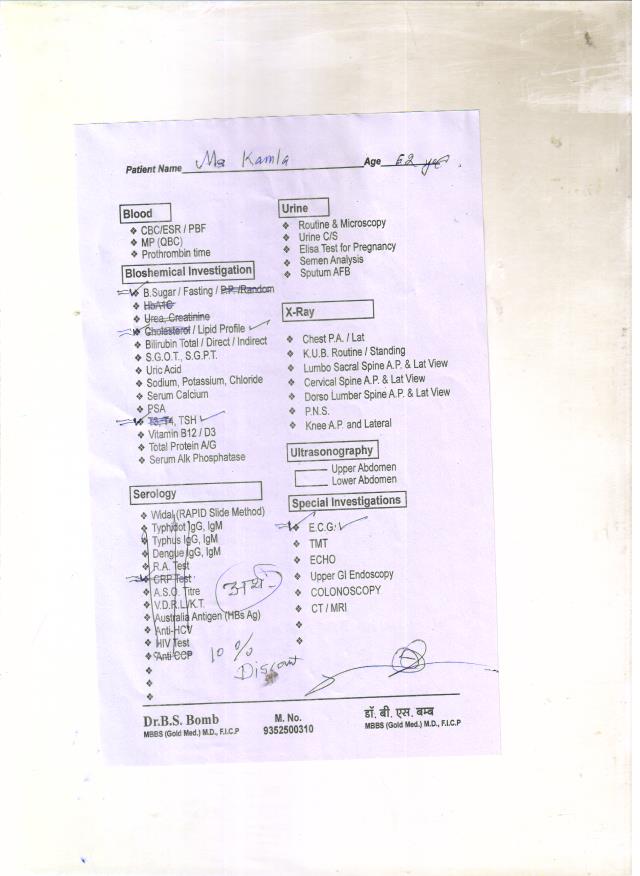 Patient Name Ms Kamla Age 62 yrs.
Blood
❖ CBC/ESR / PBF
❖ MP (QBC)
❖ Prothrombin time
Bioshemical Investigation
❖ B.Sugar / Fasting / P.P. /Random
❖ HbA1C
❖ Urea, Creatinine
❖ Cholesterol / Lipid Profile ✓
❖ Bilirubin Total / Direct / Indirect
❖ S.G.O.T., S.G.P.T.
❖ Uric Acid
❖ Sodium, Potassium, Chloride
❖ Serum Calcium
❖ PSA
❖ T3, T4, TSH ✓
❖ Vitamin B12 / D3
❖ Total Protein A/G
❖ Serum Alk Phosphatase
Serology
❖ Widal (RAPID Slide Method)
❖ Typhidot IgG, IgM
❖ Typhus IgG, IgM
❖ Dengue IgG, IgM
❖ R.A. Test
❖ CRP Test
❖ A.S.O. Titre
❖ V.D.R.L./K.T.
❖ Australia Antigen (HBs Ag)
❖ Anti-HCV
❖ HIV Test
❖ Anti CCP
10 %
Discount
Urine
❖ Routine & Microscopy
❖ Urine C/S
❖ Elisa Test for Pregnancy
❖ Semen Analysis
❖ Sputum AFB
X-Ray
❖ Chest P.A. / Lat
❖ K.U.B. Routine / Standing
❖ Lumbo Sacral Spine A.P. & Lat View
❖ Cervical Spine A.P. & Lat View
❖ Dorso Lumber Spine A.P. & Lat View
❖ P.N.S.
❖ Knee A.P. and Lateral
Ultrasonography
Upper Abdomen
Lower Abdomen
Special Investigations
❖ E.C.G. ✓
❖ TMT
❖ ECHO
❖ Upper GI Endoscopy
❖ COLONOSCOPY
❖ CT / MRI
Dr.B.S. Bomb
MBBS (Gold Med.) M.D., F.I.C.P
M. No.
9352500310
डॉ. बी. एस. बम्ब
MBBS (Gold Med.) M.D., F.I.C.P